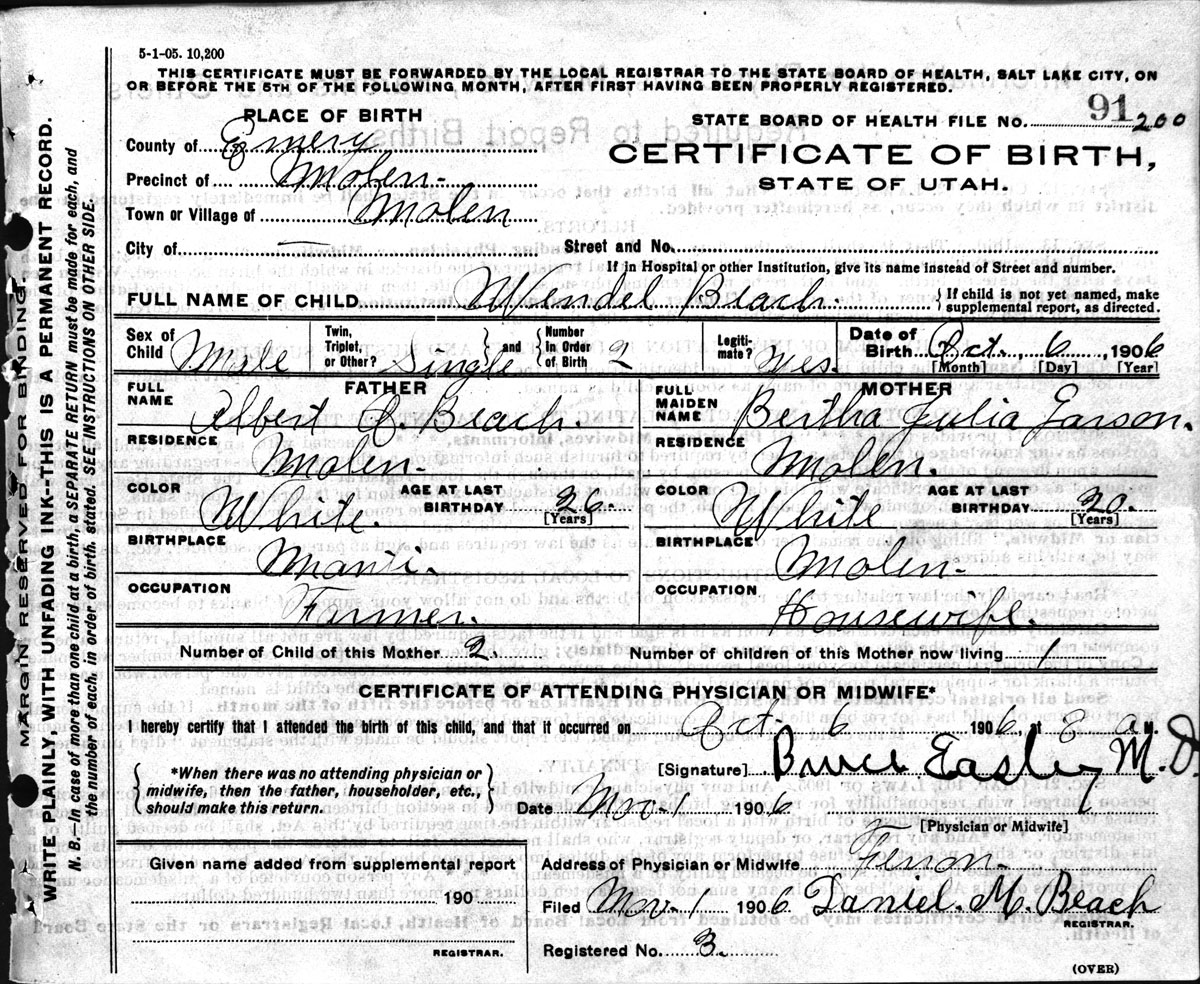 5-1-05. 10,200
THIS CERTIFICATE MUST BE FORWARDED BY THE LOCAL REGISTRAR TO THE STATE BOARD OF HEALTH, SALT LAKE CITY, ON
OR BEFORE THE 5TH OF THE FOLLOWING MONTH, AFTER FIRST HAVING BEEN PROPERLY REGISTERED.
PLACE OF BIRTH
STATE BOARD OF HEALTH FILE NO. 91 200
County of Emery
CERTIFICATE OF BIRTH,
Precinct of Molen
STATE OF UTAH.
Town or Village of Molen
City of — Street and No.
If in Hospital or other Institution, give its name instead of Street and number.
FULL NAME OF CHILD Wendel Beach. { If child is not yet named, make supplemental report, as directed.
Sex of Child Male Twin, Triplet, or Other? Single } and { Number in Order of Birth 2 Legitimate? Yes. Date of Birth Oct. 6, 1906
[Month] [Day] [Year]
FATHER
FULL NAME Albert O. Beach.
RESIDENCE Molen.
COLOR White. AGE AT LAST BIRTHDAY 26 [Years]
BIRTHPLACE Manti.
OCCUPATION Farmer.
MOTHER
FULL MAIDEN NAME Bertha Julia Larson.
RESIDENCE Molen.
COLOR White AGE AT LAST BIRTHDAY 20. [Years]
BIRTHPLACE Molen.
OCCUPATION Housewife.
Number of Child of this Mother 2. Number of children of this Mother now living 1
CERTIFICATE OF ATTENDING PHYSICIAN OR MIDWIFE*
I hereby certify that I attended the birth of this child, and that it occurred on Oct. 6 1906, at 8 a M.
{ *When there was no attending physician or midwife, then the father, householder, etc., should make this return. }
[Signature] Bruce Easley M.D.
Date Nov. 1 1906
[Physician or Midwife]
Given name added from supplemental report
190
REGISTRAR.
Address of Physician or Midwife Ferron.
Filed Nov. 1 1906 Daniel. M. Beach
REGISTRAR.
Registered No. 3.
(OVER)
MARGIN RESERVED FOR BINDING.
WRITE PLAINLY, WITH UNFADING INK--THIS IS A PERMANENT RECORD.
N. B.—In case of more than one child at a birth, a SEPARATE RETURN must be made for each, and
the number of each, in order of birth, stated. SEE INSTRUCTIONS ON OTHER SIDE.